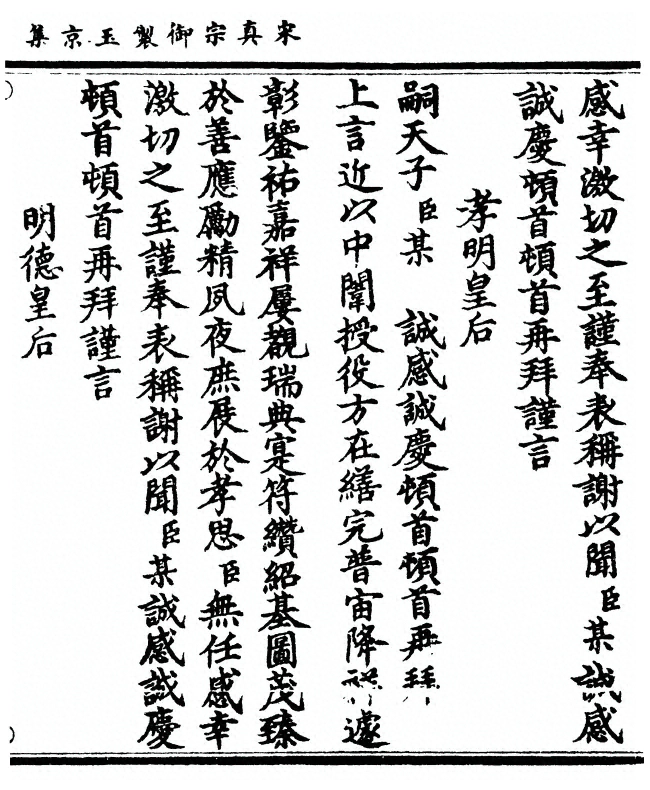 宋真宗御製玉京集
感幸激切之至謹奉表稱謝以聞臣某誠感
誠慶頓首頓首再拜謹言
孝明皇后
嗣天子臣某　誠感誠慶頓首頓首再拜
上言近以中闈授役方在繕完普宙降遽
彰鑒祐嘉祥屢觀瑞典寔符纘紹基圖茂臻
於善應勵精夙夜庶展於孝思臣無任感幸
激切之至謹奉表稱謝以聞臣某誠感誠慶
頓首頓首再拜謹言
明德皇后